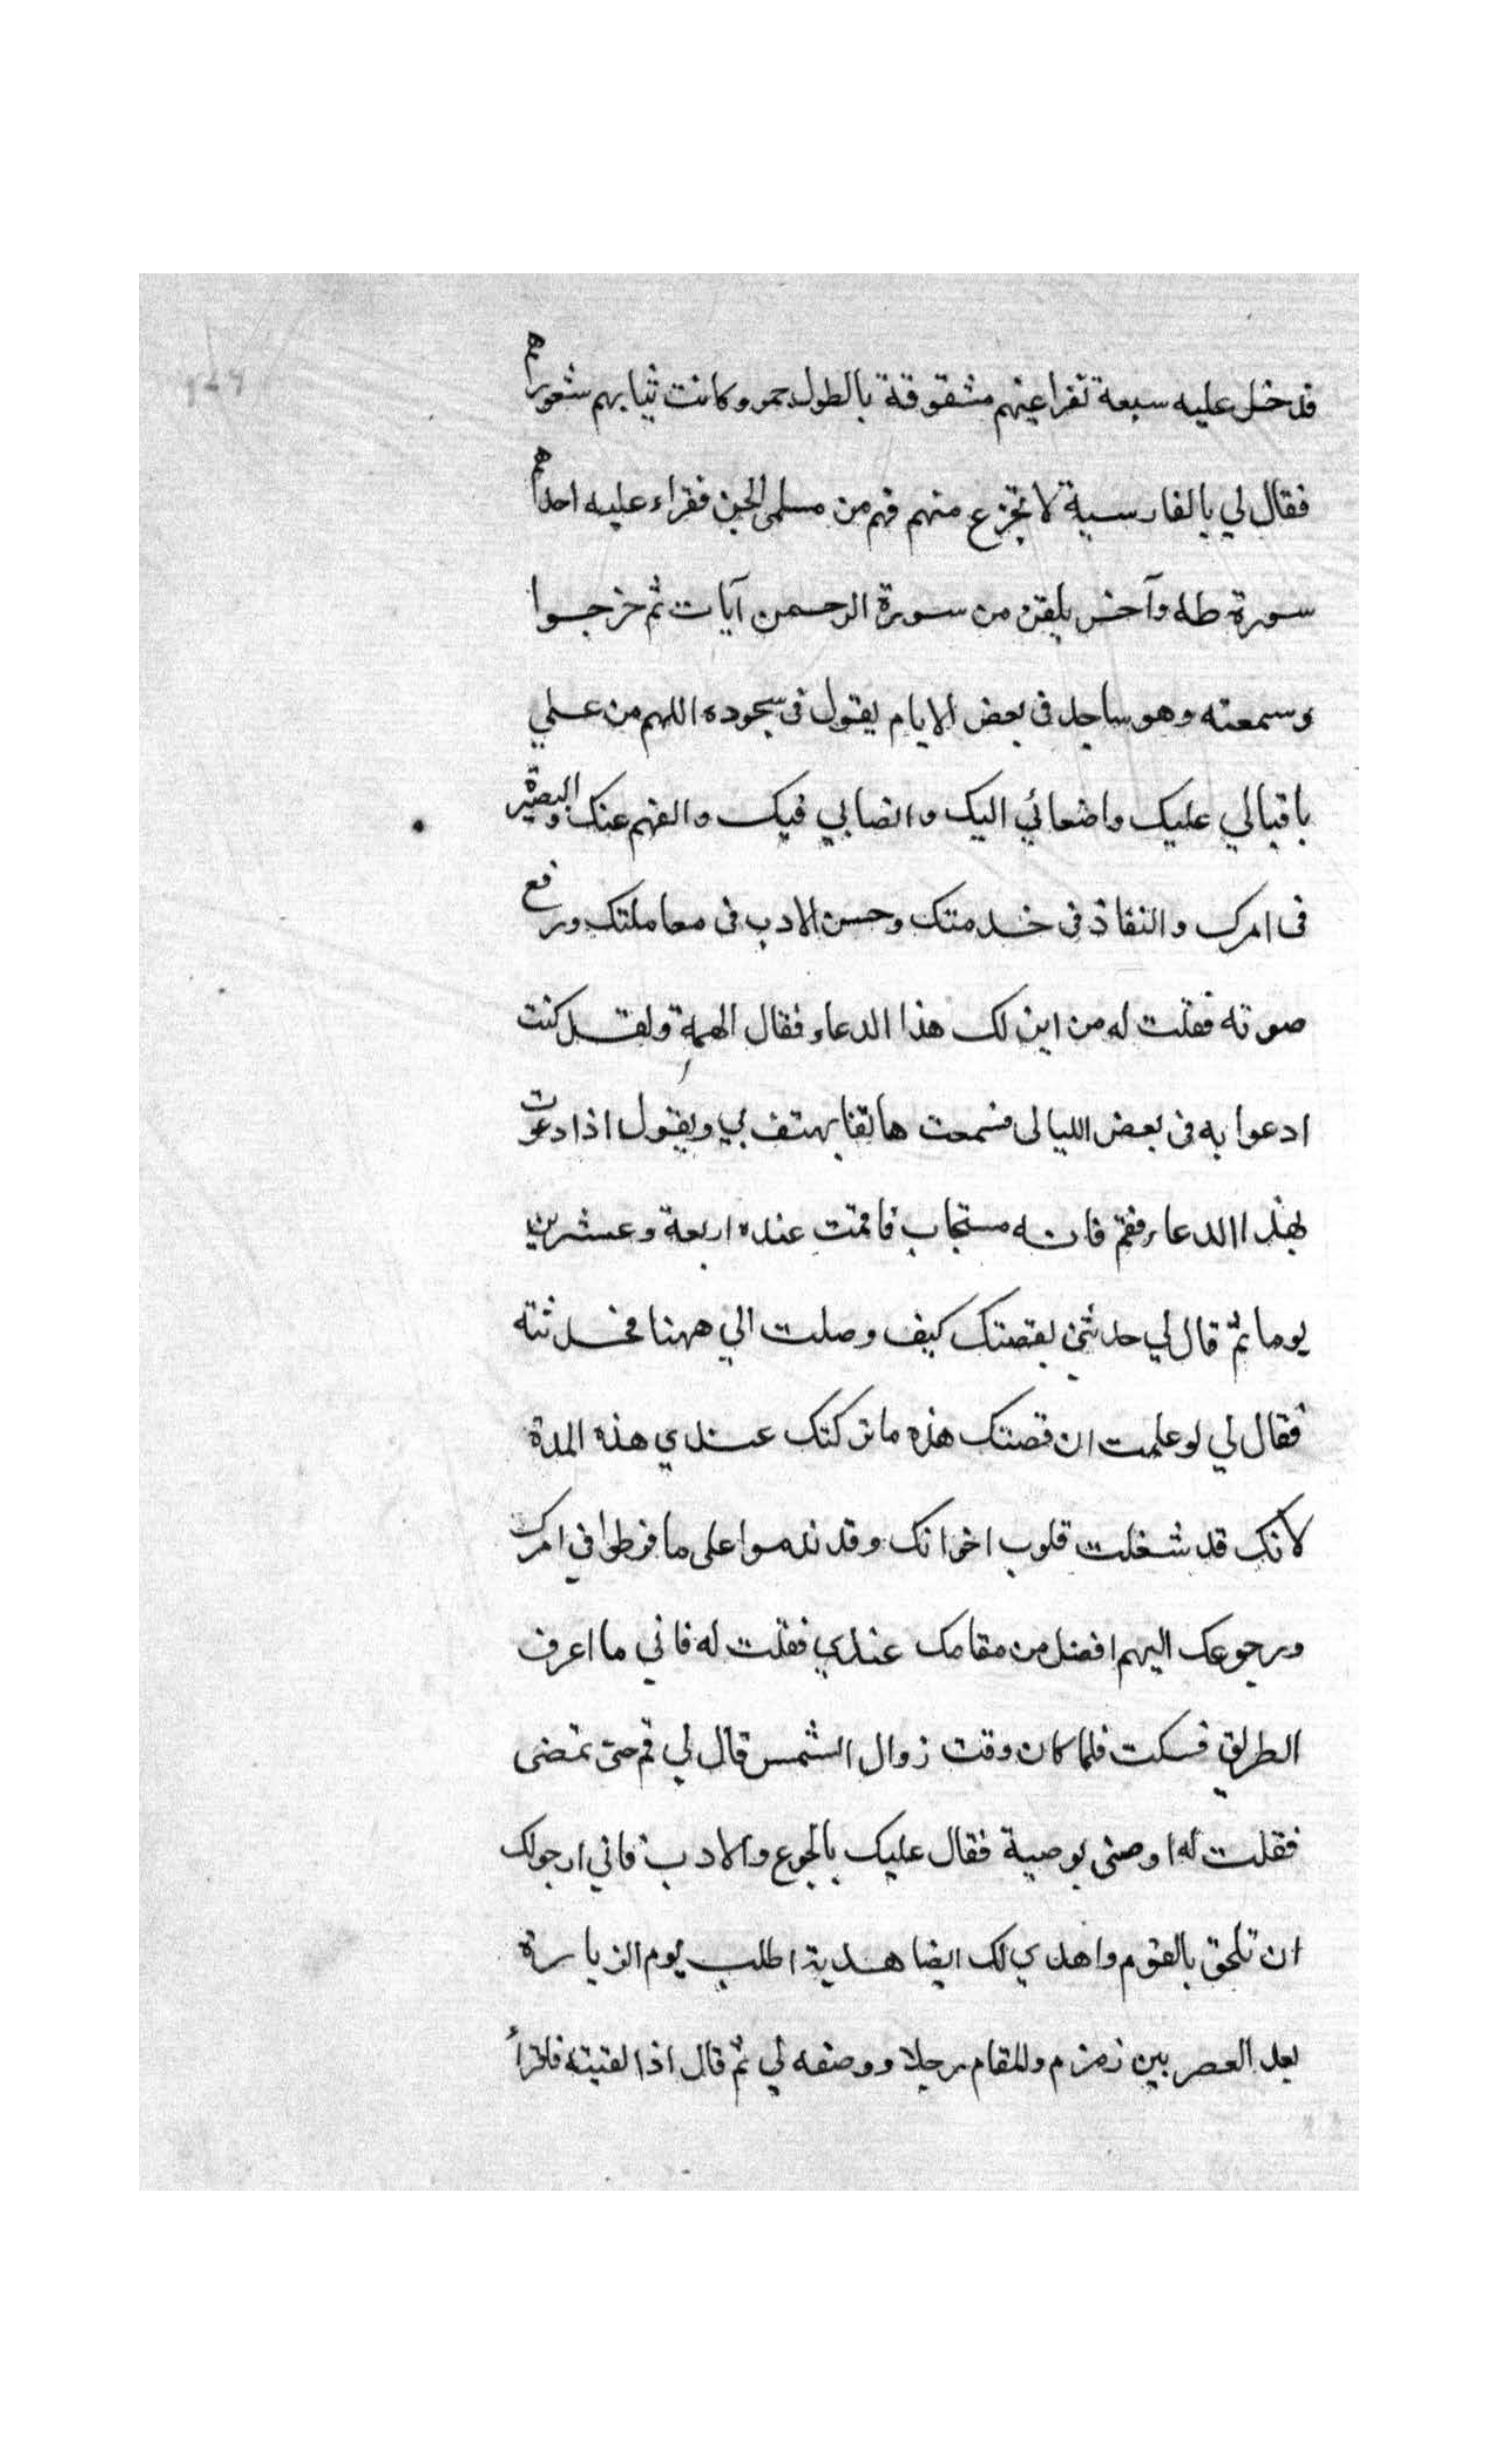 فدخل عليه سبعة نفر اعينهم مشقوقة بالطول حمر وكانت ثيابهم شعورهم
فقال لي بالفارسية لا تجزع منهم فهم من مسلمي الجن فقراء عليه احدهم
سورة طه وآخر يلقن من سورة الرحمن آيات ثم خرجوا
وسمعته وهو ساجد في بعض الايام يقول في سجوده اللهم من علي
باقبالي عليك واصغائي اليك وانصابي فيك والفهم عنك والبصيرة
في امرك والنفاذ في خدمتك وحسن الادب في معاملتك ورفع
صوته فقلت له من اين لك هذا الدعاء فقال الهمة ولقد كنت
ادعوا به في بعض الليالي فسمعت هاتفا يهتف بي ويقول اذا دعوت
بهذا الدعاء فقم فانه مستجاب فاقمت عنده اربعة وعشرين
يوما ثم قال لي حدثني بقصتك كيف وصلت الي ههنا فحدثته
فقال لي لو علمت ان قصتك هذه ما تركتك عندي هذه المدة
لانك قد شغلت قلوب اخوانك وقد ندموا على ما فرطوا في امرك
ورجوعك اليهم افضل من مقامك عندي فقلت له فاني ما اعرف
الطريق فسكت فلما كان وقت زوال الشمس قال لي قم حتى تمضى
فقلت له اوصنى بوصية فقال عليك بالجوع والادب فاني ارجو لك
ان تلحق بالقوم واهدي لك ايضا هدية اطلب يوم الزيارة
بعد العصر بين زمزم والمقام رجلا ووصفه لي ثم قال اذا لقيته فاقرأ